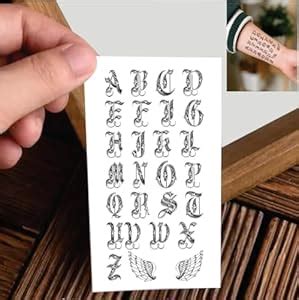 A B C D
E F I G
H J K L
M N O P
Q R S T
U V W X
Z